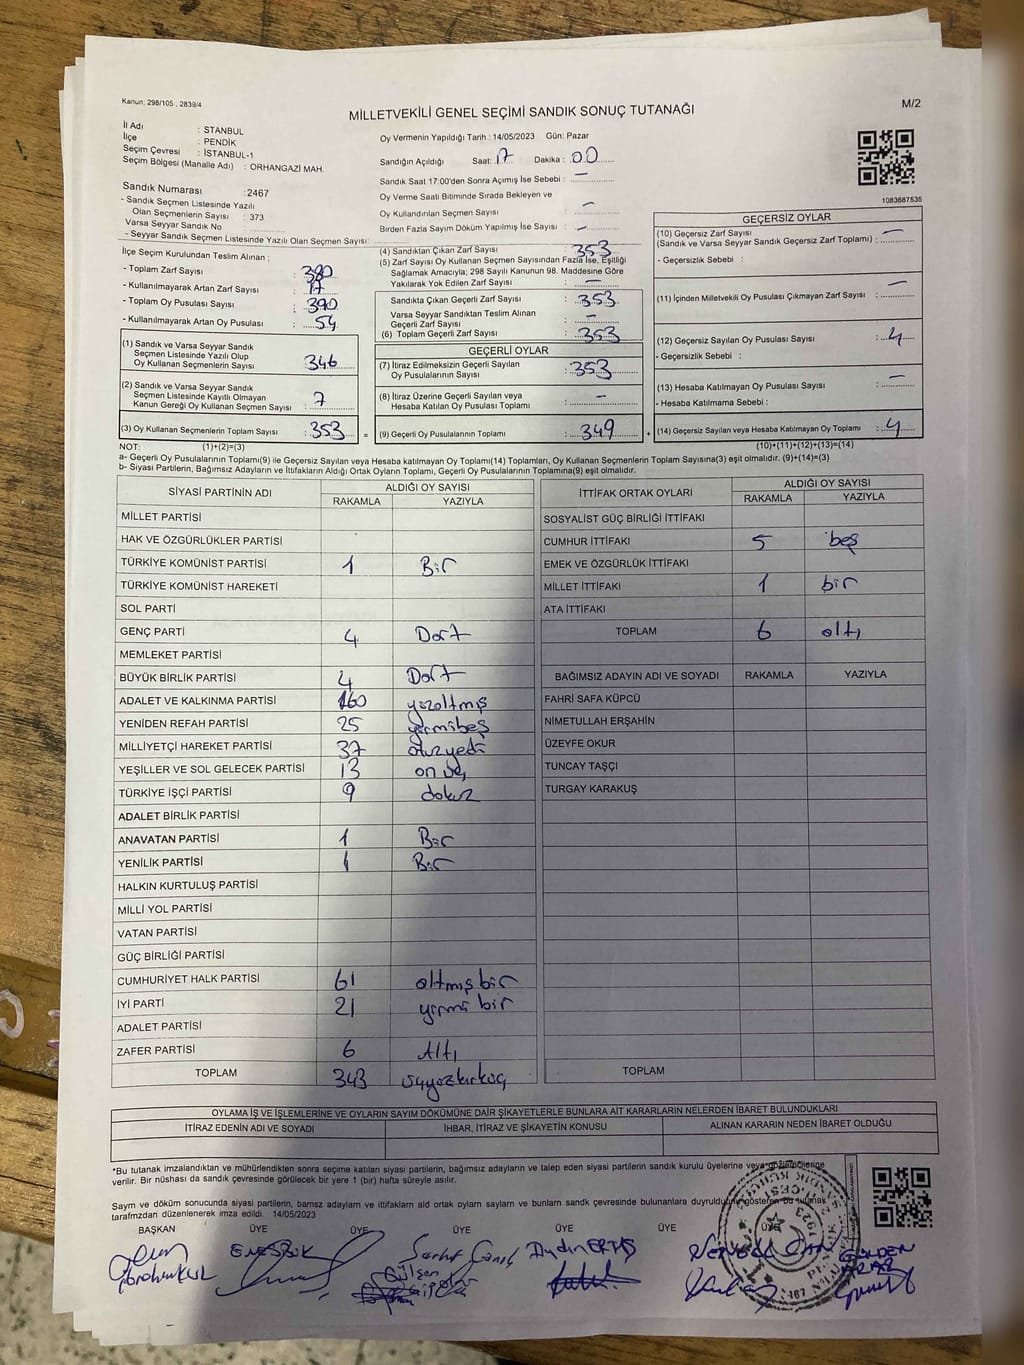 Kanun; 298/105 , 2839/4
MİLLETVEKİLİ GENEL SEÇİMİ SANDIK SONUÇ TUTANAĞI
M/2
İl Adı : STANBUL
İlçe : PENDİK
Seçim Çevresi : İSTANBUL-1
Seçim Bölgesi (Manalle Adı) : ORHANGAZİ MAH.
Sandık Numarası : 2467
- Sandık Seçmen Listesinde Yazılı
Olan Seçmenlerin Sayısı : 373
Varsa Seyyar Sandık No :
- Seyyar Sandık Seçmen Listesinde Yazılı Olan Seçmen Sayısı:
Oy Vermenin Yapıldığı Tarih : 14/05/2023 Gün: Pazar
Sandığın Açıldığı Saat: 17 Dakika : 00
Sandık Saat 17:00'den Sonra Açımış İse Sebebi : —
Oy Verme Saati Bitiminde Sırada Bekleyen ve
Oy Kullandırılan Seçmen Sayısı : —
Birden Fazla Sayım Dökümü Yapılmış İse Sayısı : —
1083687535
İlçe Seçim Kurulundan Teslim Alınan ;
- Toplam Zarf Sayısı : 380
- Kullanılmayarak Artan Zarf Sayısı : 17
- Toplam Oy Pusulası Sayısı : 390
- Kullanılmayarak Artan Oy Pusulası : 54
(1) Sandık ve Varsa Seyyar Sandık
Seçmen Listesinde Yazılı Olup
Oy Kullanan Seçmenlerin Sayısı : 346
(2) Sandık ve Varsa Seyyar Sandık
Seçmen Listesinde Kayıtlı Olmayan
Kanun Gereği Oy Kullanan Seçmen Sayısı : 7
(3) Oy Kullanan Seçmenlerin Toplam Sayısı : 353 =
(4) Sandıktan Çıkan Zarf Sayısı : 353
(5) Zarf Sayısı Oy Kullanan Seçmen Sayısından Fazla İse, Eşitliği
Sağlamak Amacıyla; 298 Sayılı Kanunun 98. Maddesine Göre
Yakılarak Yok Edilen Zarf Sayısı : —
Sandıkta Çıkan Geçerli Zarf Sayısı : 353
Varsa Seyyar Sandıktan Teslim Alınan
Geçerli Zarf Sayısı : —
(6) Toplam Geçerli Zarf Sayısı : 353
GEÇERLİ OYLAR
(7) İtiraz Edilmeksizin Geçerli Sayılan
Oy Pusulalarının Sayısı : 353
(8) İtiraz Üzerine Geçerli Sayılan veya
Hesaba Katılan Oy Pusulası Toplamı : —
(9) Geçerli Oy Pusulalarının Toplamı : 349 +
GEÇERSİZ OYLAR
(10) Geçersiz Zarf Sayısı
(Sandık ve Varsa Seyyar Sandık Geçersiz Zarf Toplamı) : —
- Geçersizlik Sebebi :
(11) İçinden Milletvekili Oy Pusulası Çıkmayan Zarf Sayısı : —
(12) Geçersiz Sayılan Oy Pusulası Sayısı : 4
- Geçersizlik Sebebi :
(13) Hesaba Katılmayan Oy Pusulası Sayısı : —
- Hesaba Katılmama Sebebi :
(14) Geçersiz Sayılan veya Hesaba Katılmayan Oy Toplamı : 4
NOT: (1)+(2)=(3) (10)+(11)+(12)+(13)=(14)
a- Geçerli Oy Pusulalarının Toplamı(9) ile Geçersiz Sayılan veya Hesaba katılmayan Oy Toplamı(14) Toplamları, Oy Kullanan Seçmenlerin Toplam Sayısına(3) eşit olmalıdır. (9)+(14)=(3)
b- Siyasi Partilerin, Bağımsız Adayların ve İttifakların Aldığı Ortak Oyların Toplamı, Geçerli Oy Pusulalarının Toplamına(9) eşit olmalıdır.
SİYASİ PARTİNİN ADI ALDIĞI OY SAYISI
RAKAMLA YAZIYLA
MİLLET PARTİSİ
HAK VE ÖZGÜRLÜKLER PARTİSİ
TÜRKİYE KOMÜNİST PARTİSİ 1 Bir
TÜRKİYE KOMÜNİST HAREKETİ
SOL PARTİ
GENÇ PARTİ 4 Dört
MEMLEKET PARTİSİ
BÜYÜK BİRLİK PARTİSİ 4 Dört
ADALET VE KALKINMA PARTİSİ 160 yüzaltmış
YENİDEN REFAH PARTİSİ 25 yirmibeş
MİLLİYETÇİ HAREKET PARTİSİ 37 otuzyedi
YEŞİLLER VE SOL GELECEK PARTİSİ 13 on üç
TÜRKİYE İŞÇİ PARTİSİ 9 dokuz
ADALET BİRLİK PARTİSİ
ANAVATAN PARTİSİ 1 Bir
YENİLİK PARTİSİ 1 Bir
HALKIN KURTULUŞ PARTİSİ
MİLLİ YOL PARTİSİ
VATAN PARTİSİ
GÜÇ BİRLİĞİ PARTİSİ
CUMHURİYET HALK PARTİSİ 61 altmış bir
İYİ PARTİ 21 yirmi bir
ADALET PARTİSİ
ZAFER PARTİSİ 6 Altı
TOPLAM 343 üçyüzkırküç
İTTİFAK ORTAK OYLARI ALDIĞI OY SAYISI
RAKAMLA YAZIYLA
SOSYALIST GÜÇ BİRLİĞİ İTTİFAKI
CUMHUR İTTİFAKI 5 beş
EMEK VE ÖZGÜRLÜK İTTİFAKI
MİLLET İTTİFAKI 1 bir
ATA İTTİFAKI
TOPLAM 6 altı
BAĞIMSIZ ADAYIN ADI VE SOYADI RAKAMLA YAZIYLA
FAHRİ SAFA KÜPCÜ
NİMETULLAH ERŞAHİN
ÜZEYFE OKUR
TUNCAY TAŞÇI
TURGAY KARAKUŞ
TOPLAM
OYLAMA İŞ VE İŞLEMLERİNE VE OYLARIN SAYIM DÖKÜMÜNE DAİR ŞİKAYETLERLE BUNLARA AİT KARARLARIN NELERDEN İBARET BULUNDUKLARI
İTİRAZ EDENİN ADI VE SOYADI İHBAR, İTİRAZ VE ŞİKAYETİN KONUSU ALINAN KARARIN NEDEN İBARET OLDUĞU
*Bu tutanak imzalandıktan ve mühürlendikten sonra seçime katılan siyasi partilerin, bağımsız adayların ve talep eden siyasi partilerin sandık kurulu üyelerine veya gözlemcilerine
verilir. Bir nüshası da sandık çevresinde görülecek bir yere 1 (bir) hafta süreyle asılır.
Sayım ve döküm sonucunda siyasi partilerin, bamsz adayların ve ittifakların ald ortak oylarn saylarn ve bunlarn sandk çevresinde bulunanlara duyruldu gösteren bu tutanak
tarafmzdan düzenlenerek imza edildi. 14/05/2023
BAŞKAN ÜYE ÜYE ÜYE ÜYE ÜYE ÜYE
Serhat Aydın ERTAŞ
İbrahim KUL Gülşen